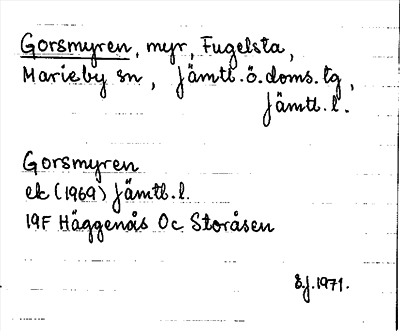 Gorsmyren, myr, Fugelsta,
Marieby sn, Jämtl.ö.doms.tg,
Jämtl.l.
Gorsmyren
ek (1969) Jämtl.l.
19F Häggenås Oc Storåsen
E.J.1971.